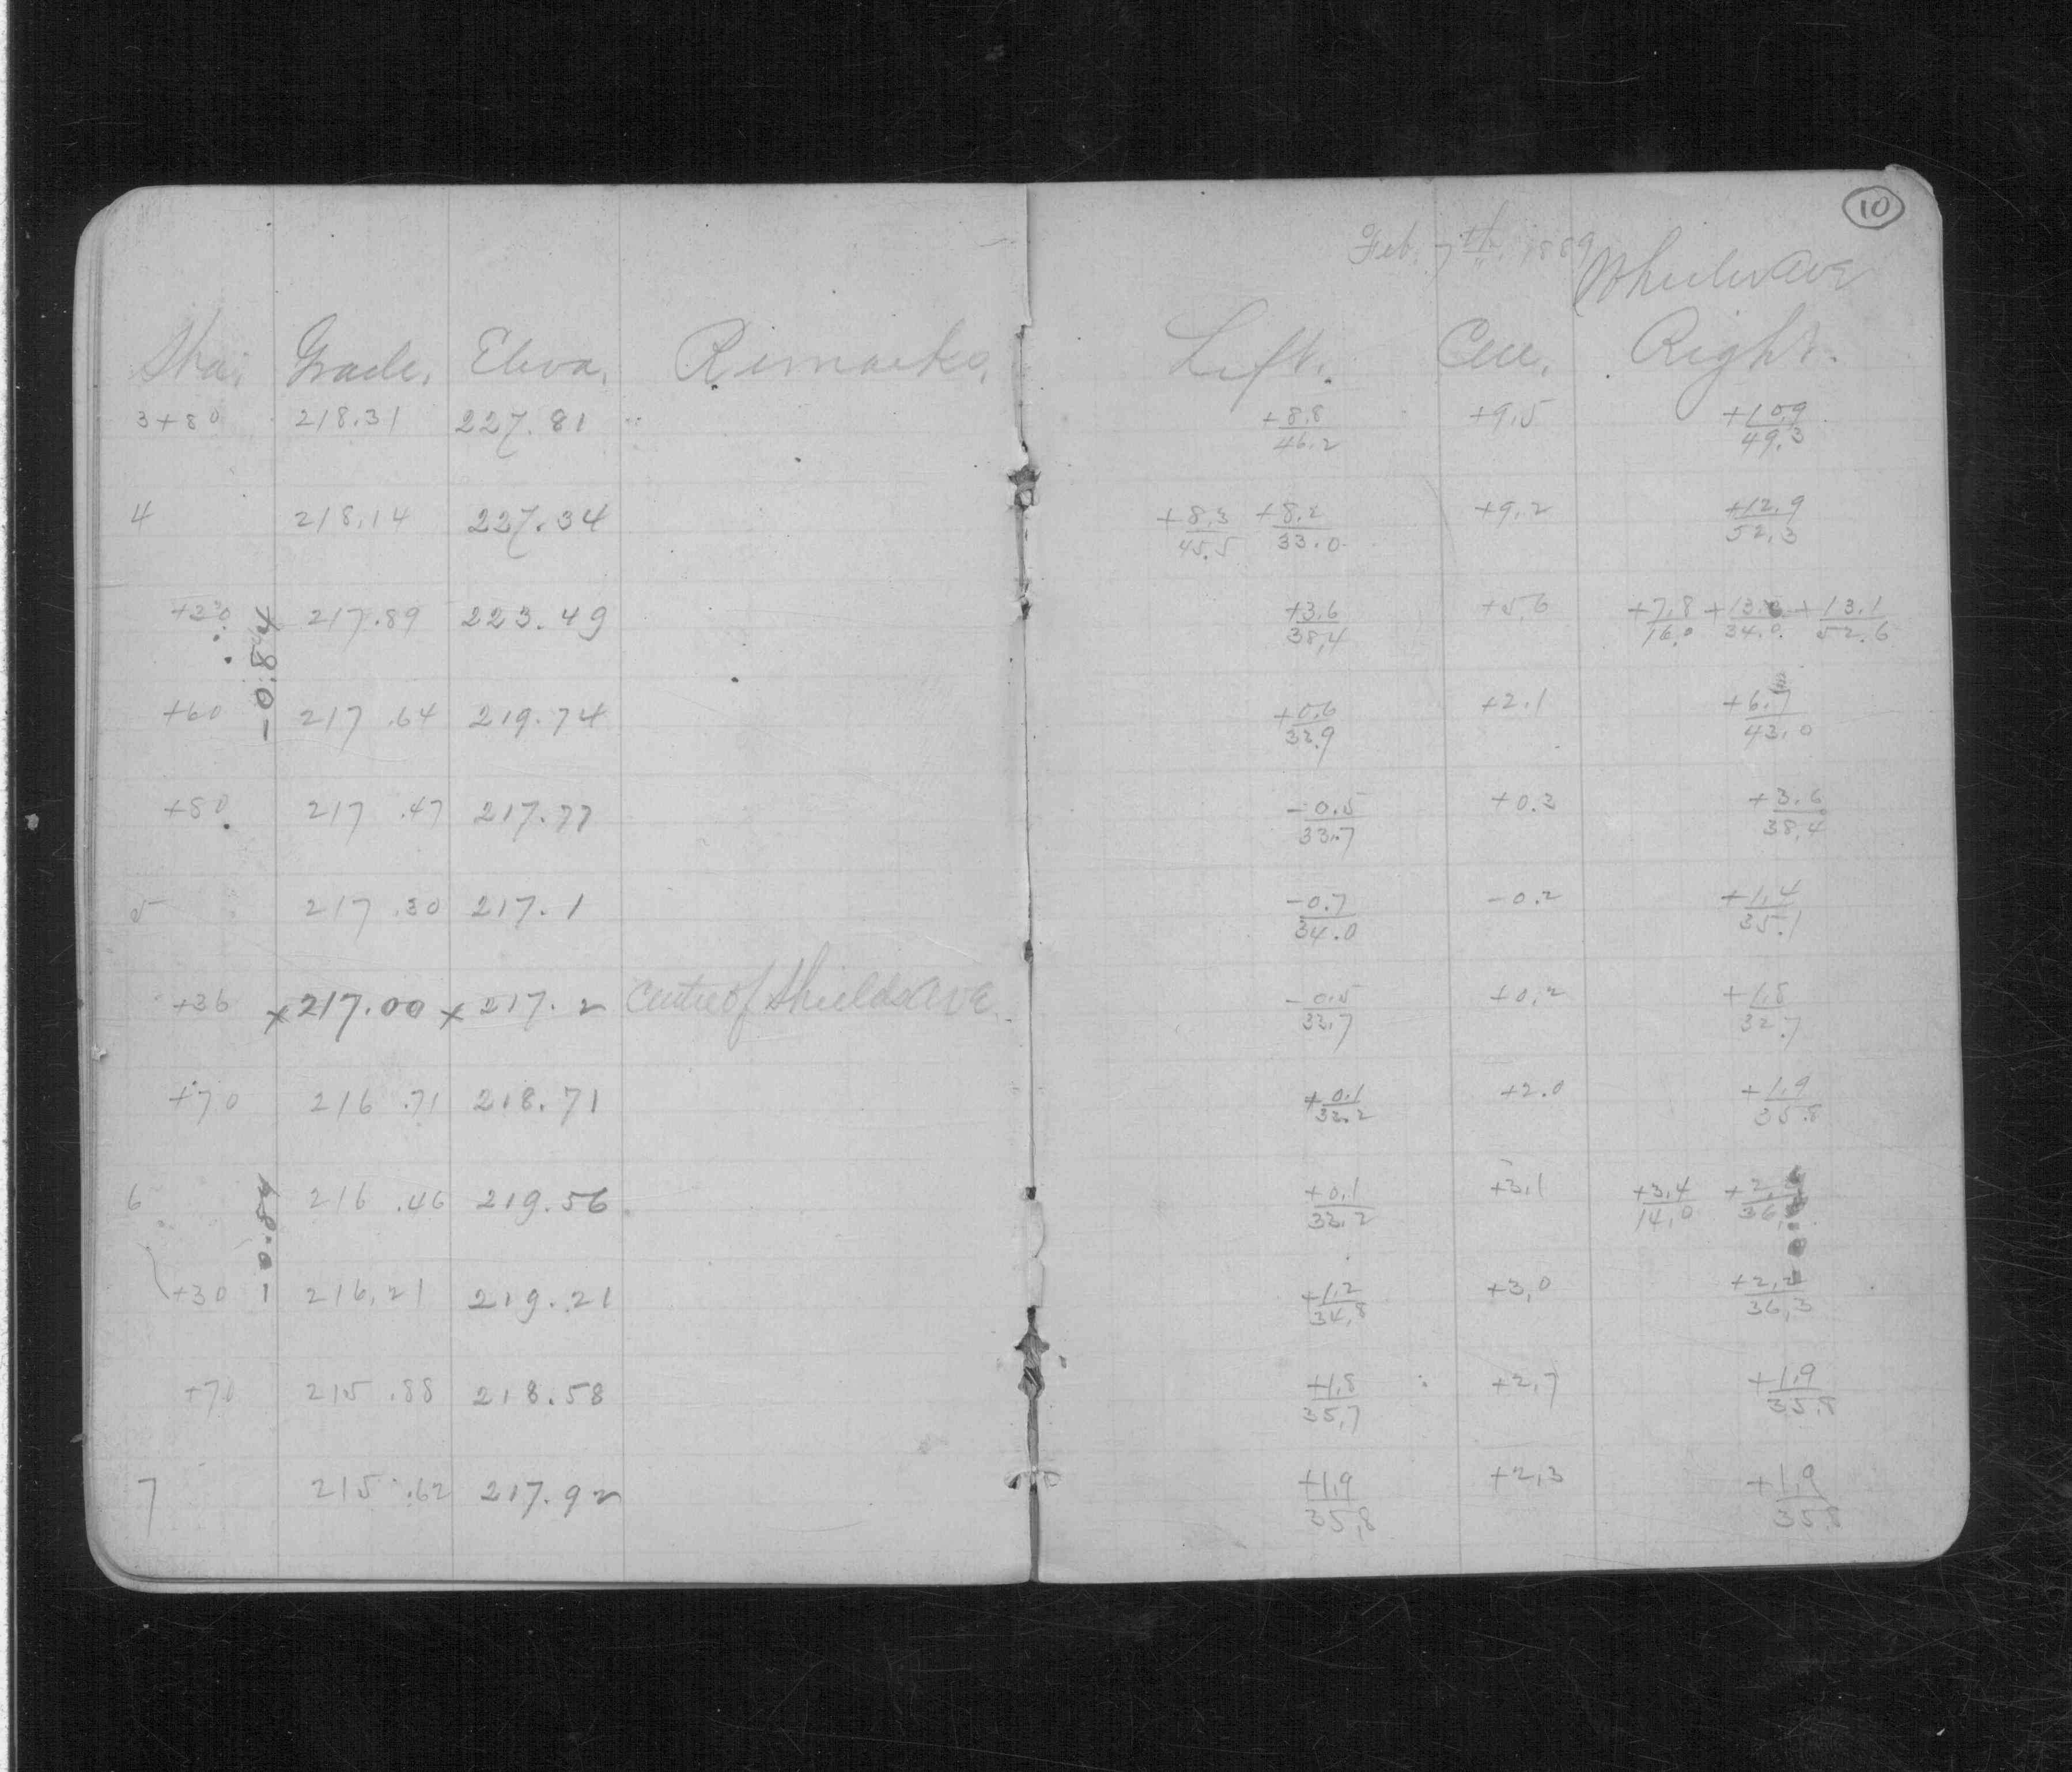 10
Feb. 7th. 1889
Wheeler Ave
Sta. Grade. Eleva. Remarks. Left. Cen. Right.
3+80 218.31 227.81 +8.8/46.2 +9.5 +10.9/49.3
4 218.14 227.34 +8.3/45.5 +8.2/33.0 +9.2 +12.9/52.3
+30 217.89 223.49 +3.6/38.4 +5.6 +7.8/16.0 +13.0/34.0 +13.1/52.6
-0.84
+60 217.64 219.74 +0.6/32.9 +2.1 +6.7/43.0
+80 217.47 217.77 -0.5/33.7 +0.3 +3.6/38.4
5 217.30 217.1 -0.7/34.0 -0.2 +1.4/35.1
+36 x 217.00 x 217.2 Centre of Shields Ave. -0.5/33.7 +0.2 +1.8/32.7
+70 216.71 218.71 +0.1/33.2 +2.0 +1.9/35.8
6 216.46 219.56 +0.1/33.2 +3.1 +3.4/14.0
-0.84
+30 216.21 219.21 +1.2/34.8 +3.0 +2.2/36.3
+70 215.88 218.58 +1.8/35.7 +2.7 +1.9/35.8
7 215.62 217.92 +1.9/35.8 +2.3 +1.9/35.8